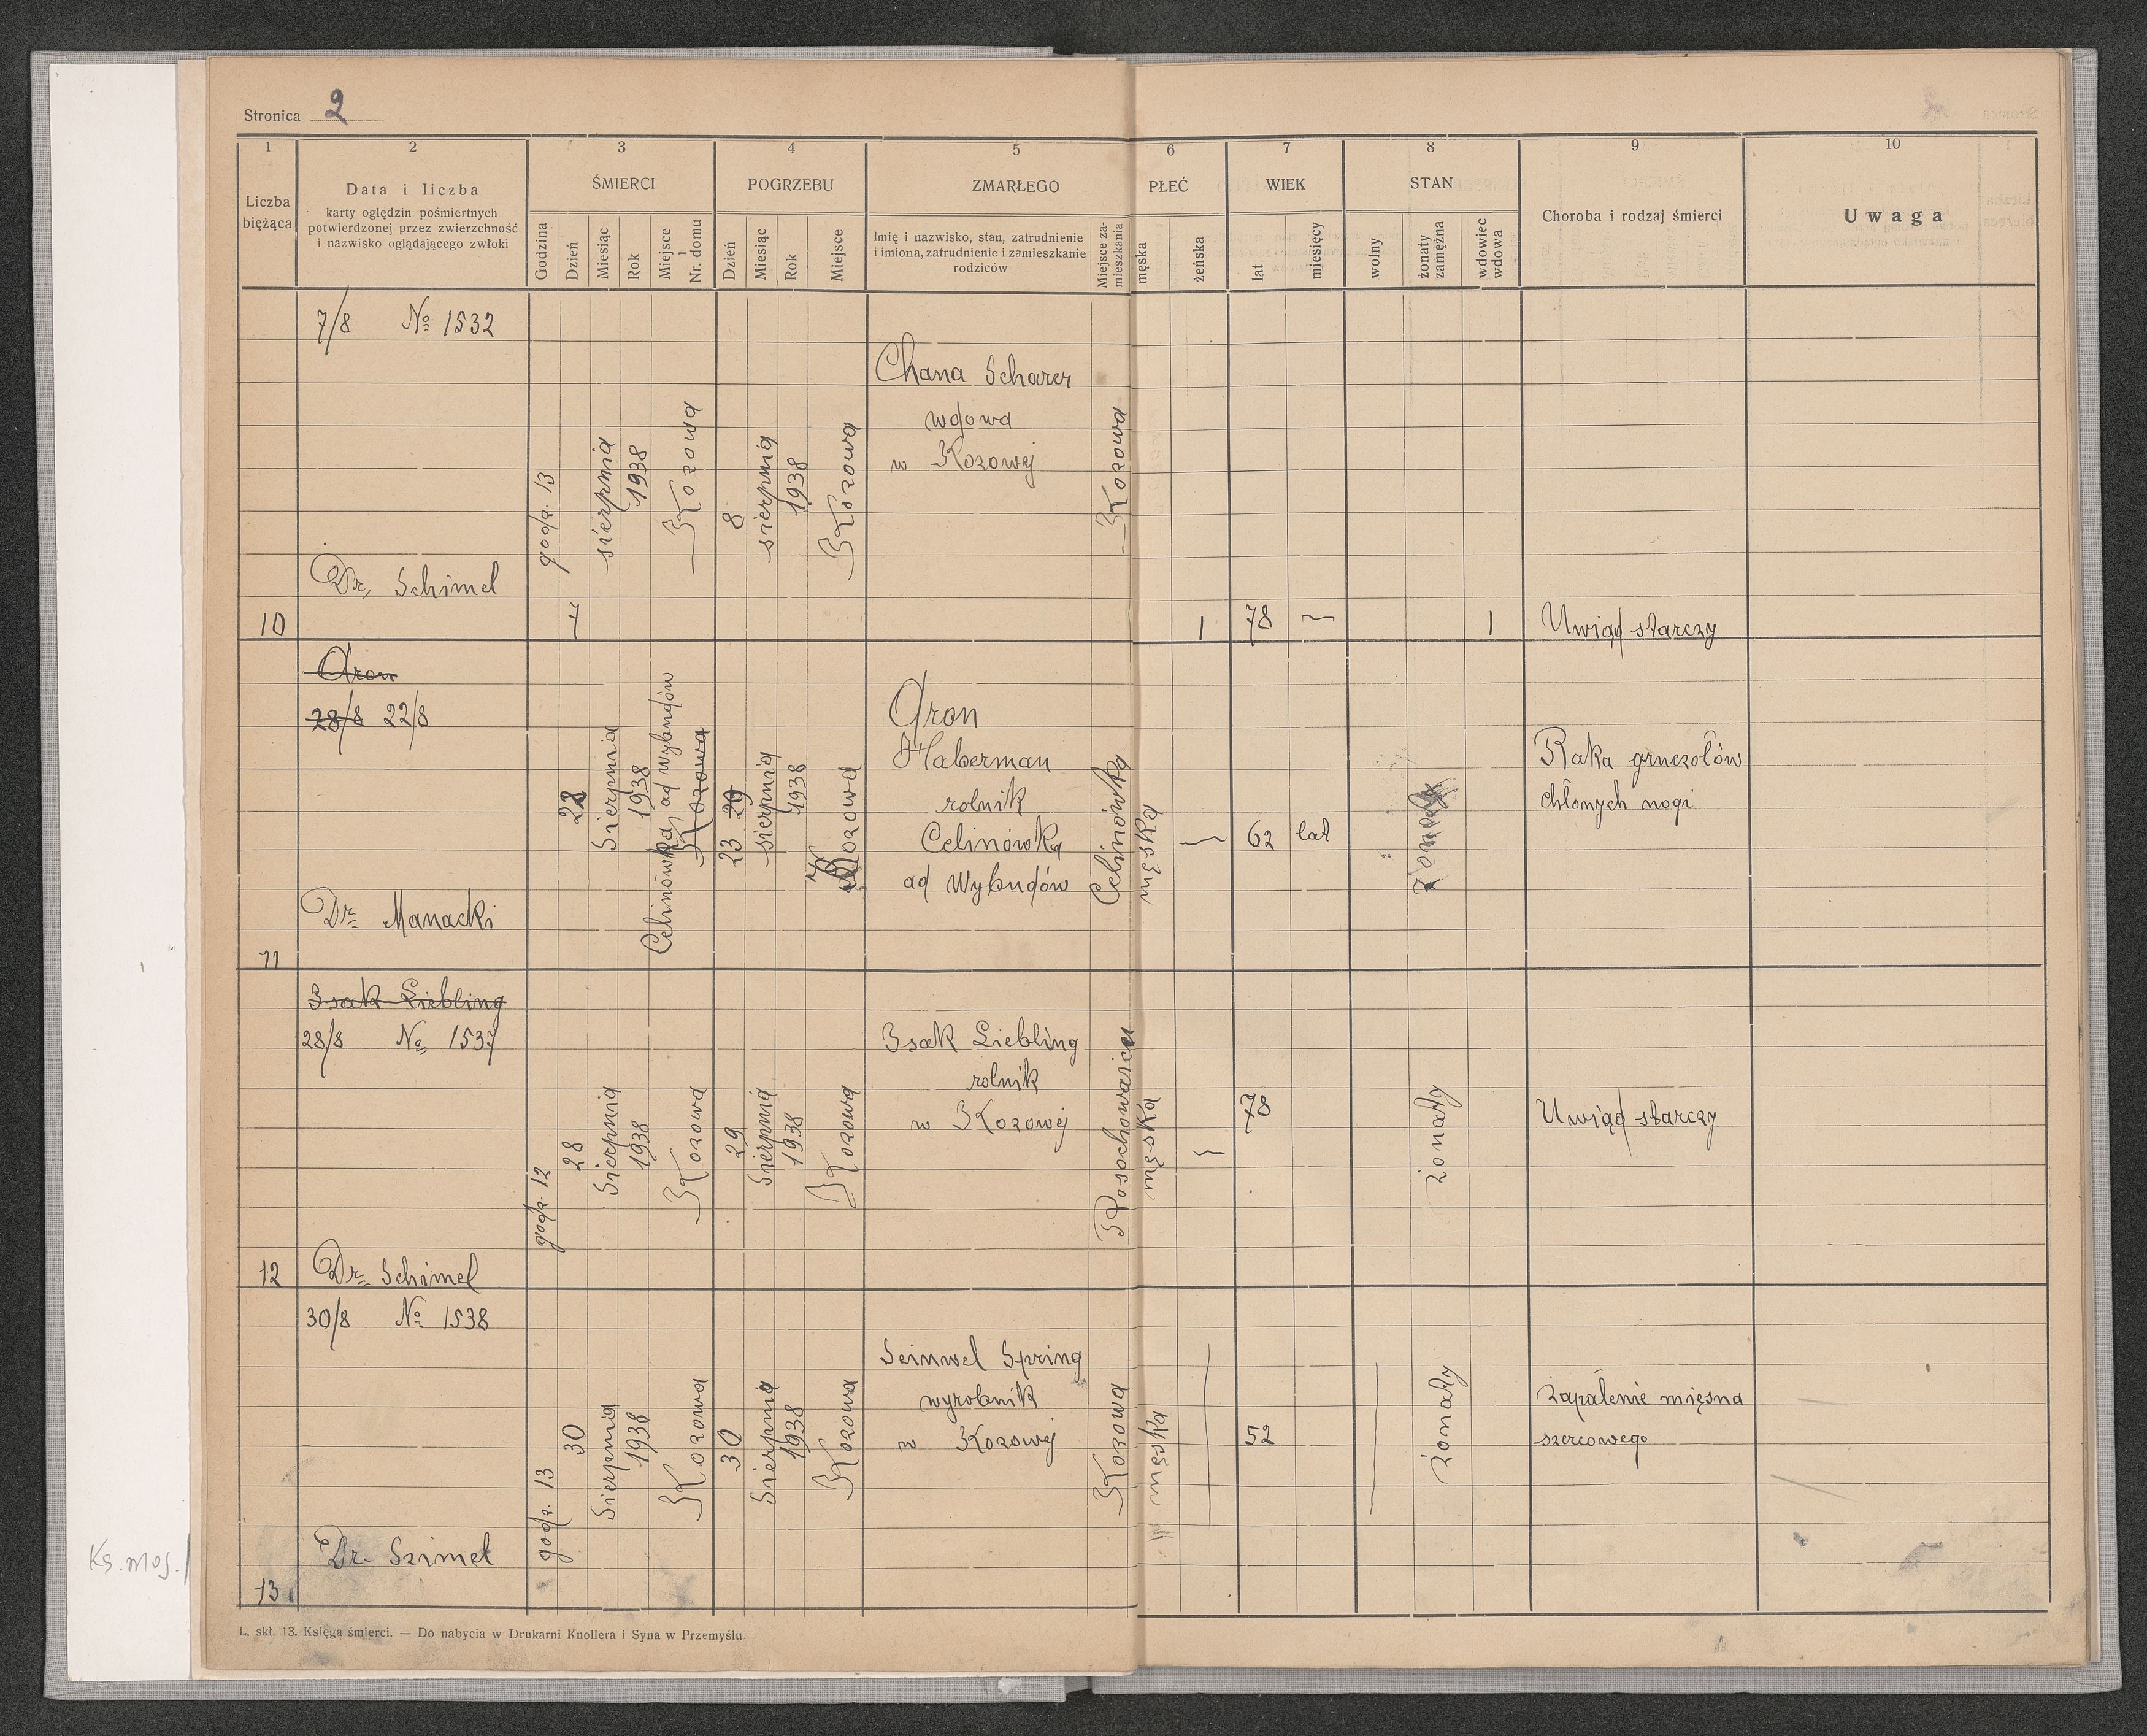 Stronica 2
1 2 3 4 5 6 7 8 9 10
Liczba bieżąca
Data i liczba
karty oględzin pośmiertnych
potwierdzonej przez zwierzchność
i nazwisko oglądającego zwłoki
ŚMIERCI
Godzina
Dzień
Miesiąc
Rok
Miejsce i Nr. domu
POGRZEBU
Dzień
Miesiąc
Rok
Miejsce
ZMARŁEGO
Imię i nazwisko, stan, zatrudnienie
i imiona, zatrudnienie i zamieszkanie
rodziców
Miejsce za-
mieszkania
PŁEĆ
męska
żeńska
WIEK
lat
miesięcy
STAN
wolny
żonaty
zamężna
wdowiec
wdowa
Choroba i rodzaj śmierci
Uwaga
7/8 No 1532
Dr. Schimel
10
godz. 13
7
sierpnia
1938
Kozowa
8
sierpnia
1938
Kozowa
Chana Scharer
wdowa
w Kozowej
Kozowa
1
78 —
1
Uwiąd starczy
Aron
28/8 22/8
Dr. Manacki
11
22
Sierpnia
1938
Celinówka, ad wybudów
Kozowa
23 29
sierpnia
1938
Kozowa
Aron
Haberman
rolnik
Celinówka
ad Wybudów
Celinówka
męska
—
62 lat
Raka gruczołów
chłonych nogi
Isak Liebling
28/8 No 1537
12 Dr. Schimel
godz. 12
28
Sierpnia
1938
Kozowa
29
Sierpnia
1938
Kozowa
Isak Liebling
rolnik
w Kozowej
męska
—
78
żonaty
Uwiąd starczy
30/8 No 1538
Dr. Szimel
13
godz. 13
30
Sierpnia
1938
Kozowa
30
Sierpnia
1938
Kozowa
Seinwel Spring
wyrobnik
w Kozowej
Kozowa
męska
52
żonaty
Zapalenie mięsna
szercowego
L. skł. 13. Księga śmierci. — Do nabycia w Drukarni Knollera i Syna w Przemyślu.
Ks. moj.